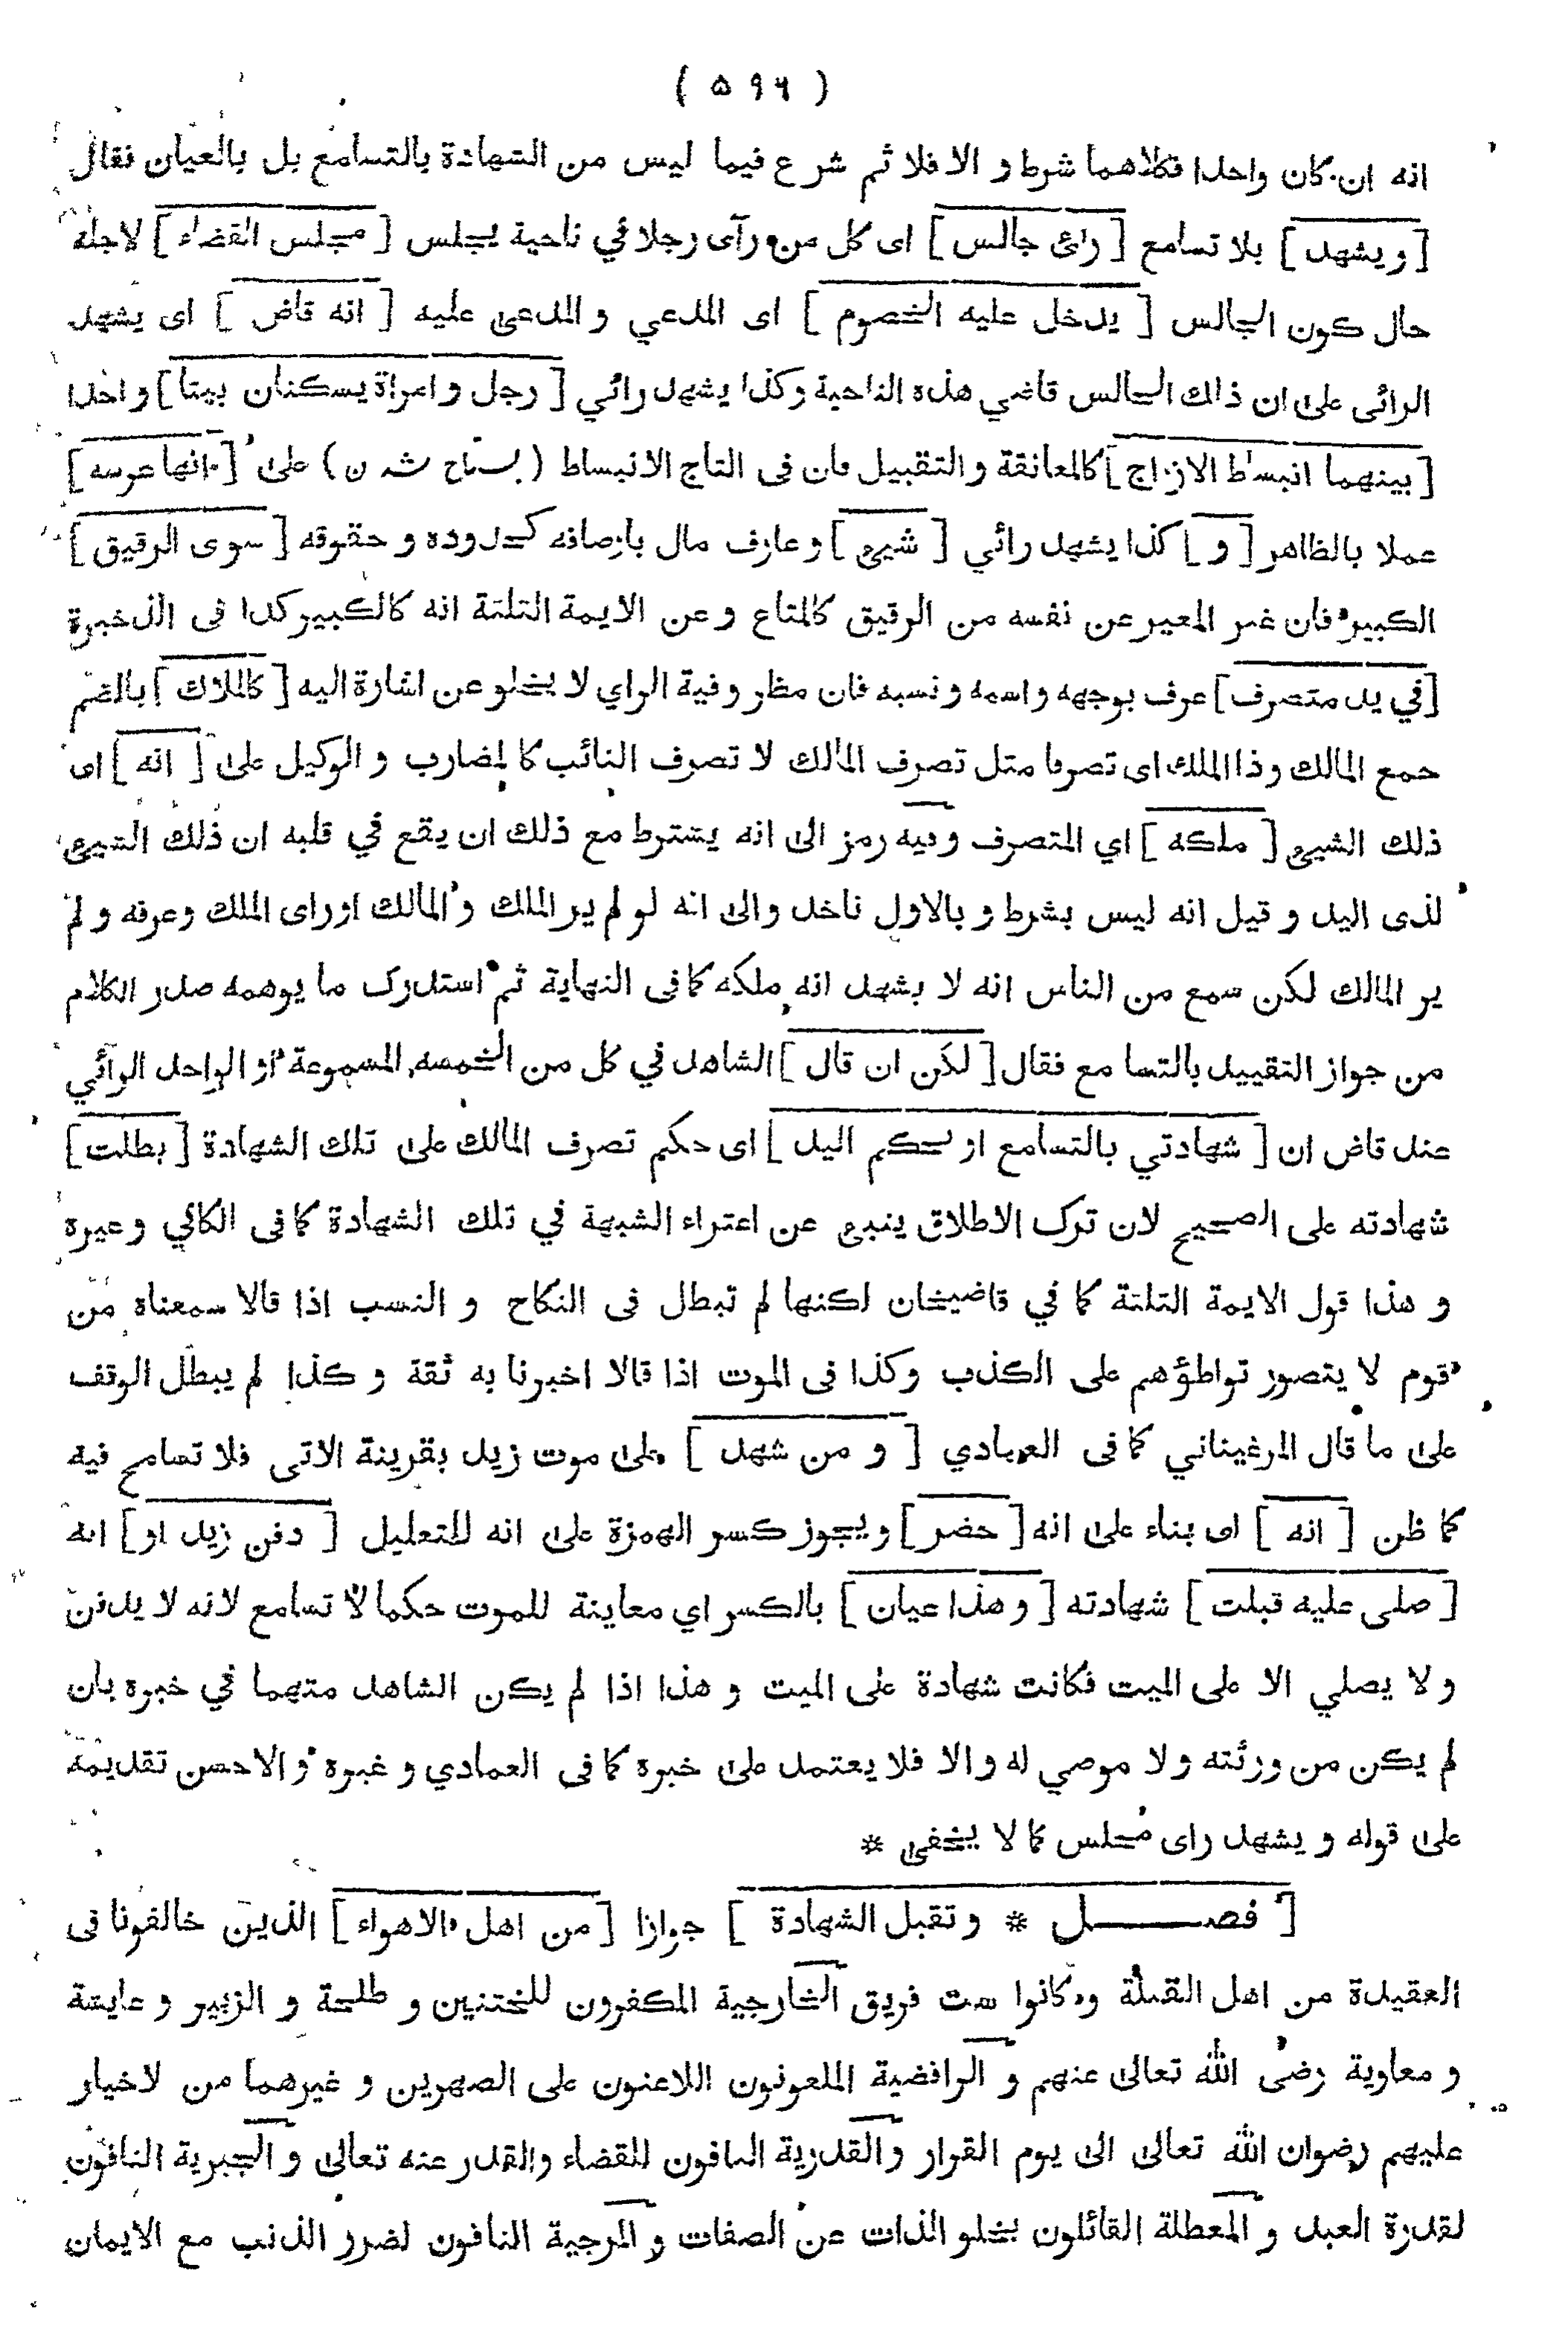 ( ۵۹۶ )
انه ان كان واحدا فكلاهما شرط و الا فلا ثم شرع فيما ليس من الشهادة بالتسامع بل بالعيان فقال
[ ويشهد ] بلا تسامع [ رائ جالس ] اى كل من رآى رجلا في ناحية يجلس [ مجلس القضاء ] لاجله
حال كون الجالس [ يدخل عليه الخصوم ] اى المدعي و المدعى عليه [ انه قاض ] اى يشهد
الرائى على ان ذلك الجالس قاضي هذه الناحية وكذا يشهد رائي [ رجل و امراة يسكنان بيتا ] واحدا
[ بينهما انبساط الازواج ] كالمعانقة والتقبيل فان فى التاج الانبساط ( ) على [ انها عرسه ]
عملا بالظاهر [ و ] كذا يشهد رائي [ شيئ ] وعارف مال باوصافه كحدوده و حقوقه [ سوى الرقيق ]
الكبير فان غير المعبر عن نفسه من الرقيق كالمتاع وعن الايمة الثلثة انه كالكبير كذا فى الذخيرة
[ في يد متصرف ] عرف بوجهه واسمه ونسبه فان مظروفية الراي لا يخلو عن اشارة اليه [ كالملاك ] بالضم
جمع المالك وذا الملك اى تصرفا مثل تصرف المالك لا تصرف النائب كالمضارب و الوكيل على [ انه ] اى
ذلك الشيئ [ ملكه ] اي المتصرف وفيه رمز الى انه يشترط مع ذلك ان يقع في قلبه ان ذلك الشيئ
لذى اليد و قيل انه ليس بشرط و بالاول ناخذ والى انه لو لم ير الملك و المالك او راى الملك وعرفه و لم
ير المالك لكن سمع من الناس انه لا يشهد انه ملكه كما فى النهاية ثم استدرك ما يوهمه صدر الكلام
من جواز التقييد بالتسامع فقال [ لكن ان قال ] الشاهد في كل من الخمسه المسموعة او الواحد الرآئي
عند قاض ان [ شهادتي بالتسامع او بحكم اليد ] اى حكم تصرف المالك على تلك الشهادة [ بطلت ]
شهادته على الصحيح لان ترك الاطلاق ينبئ عن اعتراء الشبهة في تلك الشهادة كما فى الكافي وغيره
و هذا قول الايمة الثلثة كما في قاضيخان لكنها لم تبطل فى النكاح و النسب اذا قالا سمعناه من
قوم لا يتصور تواطؤهم على الكذب وكذا فى الموت اذا قالا اخبرنا به ثقة و كذا لم يبطل الوقف
على ما قال المرغيناني كما فى العبادي [ و من شهد ] على موت زيد بقرينة الاتى فلا تسامح فيه
كما ظن [ انه ] اى بناء على انه [ حضر ] ويجوز كسر الهمزة على انه للتعليل [ دفن زيد او ] انه
[ صلى عليه قبلت ] شهادته [ وهذا عيان ] بالكسر اي معاينة للموت حكما لا تسامع لانه لا يدفن
و لا يصلي الا على الميت فكانت شهادة على الميت و هذا اذا لم يكن الشاهد متهما في خبره بان
لم يكن من ورثته ولا موصي له والا فلا يعتمد على خبره كما فى العمادي و غيره و الاحسن تقديمه
على قوله و يشهد راى مجلس كما لا يخفى *
[ فصــل * وتقبل الشهادة ] جوازا [ من اهل الاهواء ] الذين خالفونا فى
العقيدة من اهل القبلة وكانوا ست فريق الخارجية المكفرون للختنين و طلحة و الزبير و عايشة
و معاوية رضى الله تعالى عنهم و الرافضية الملعونون اللاعنون على الصهرين و غيرهما من لاخيار
عليهم رضوان الله تعالى الى يوم القرار والقدرية النافون للقضاء والقدر عنه تعالى و الجبرية النافون
لقدرة العبد و المعطلة القائلون بخلو الذات عن الصفات و المرجية النافون لضرر الذنب مع الايمان